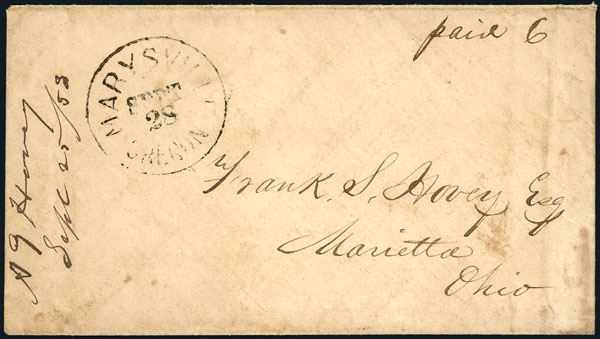 paid 6
MARYSVILLE
SEPT
28
OREGON
Frank. S. Hovey Esq
Marietta
Ohio
A G Hovey
Sept 25/53